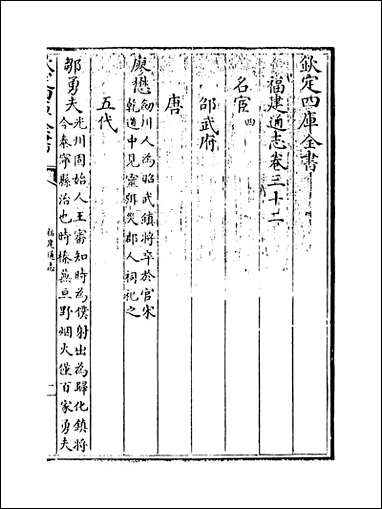 欽定四庫全書
福建通志卷三十二
名宦四
邵武府
唐
廖懋劍川人為昭武鎮將卒於官宋
乾道中見靈弭災郡人祠祀之
五代
鄒勇夫光州固始人王審知時為僕射出為歸化鎮將
今泰寧縣治也時榛蕪亘野烟火僅百家勇夫
福建通志